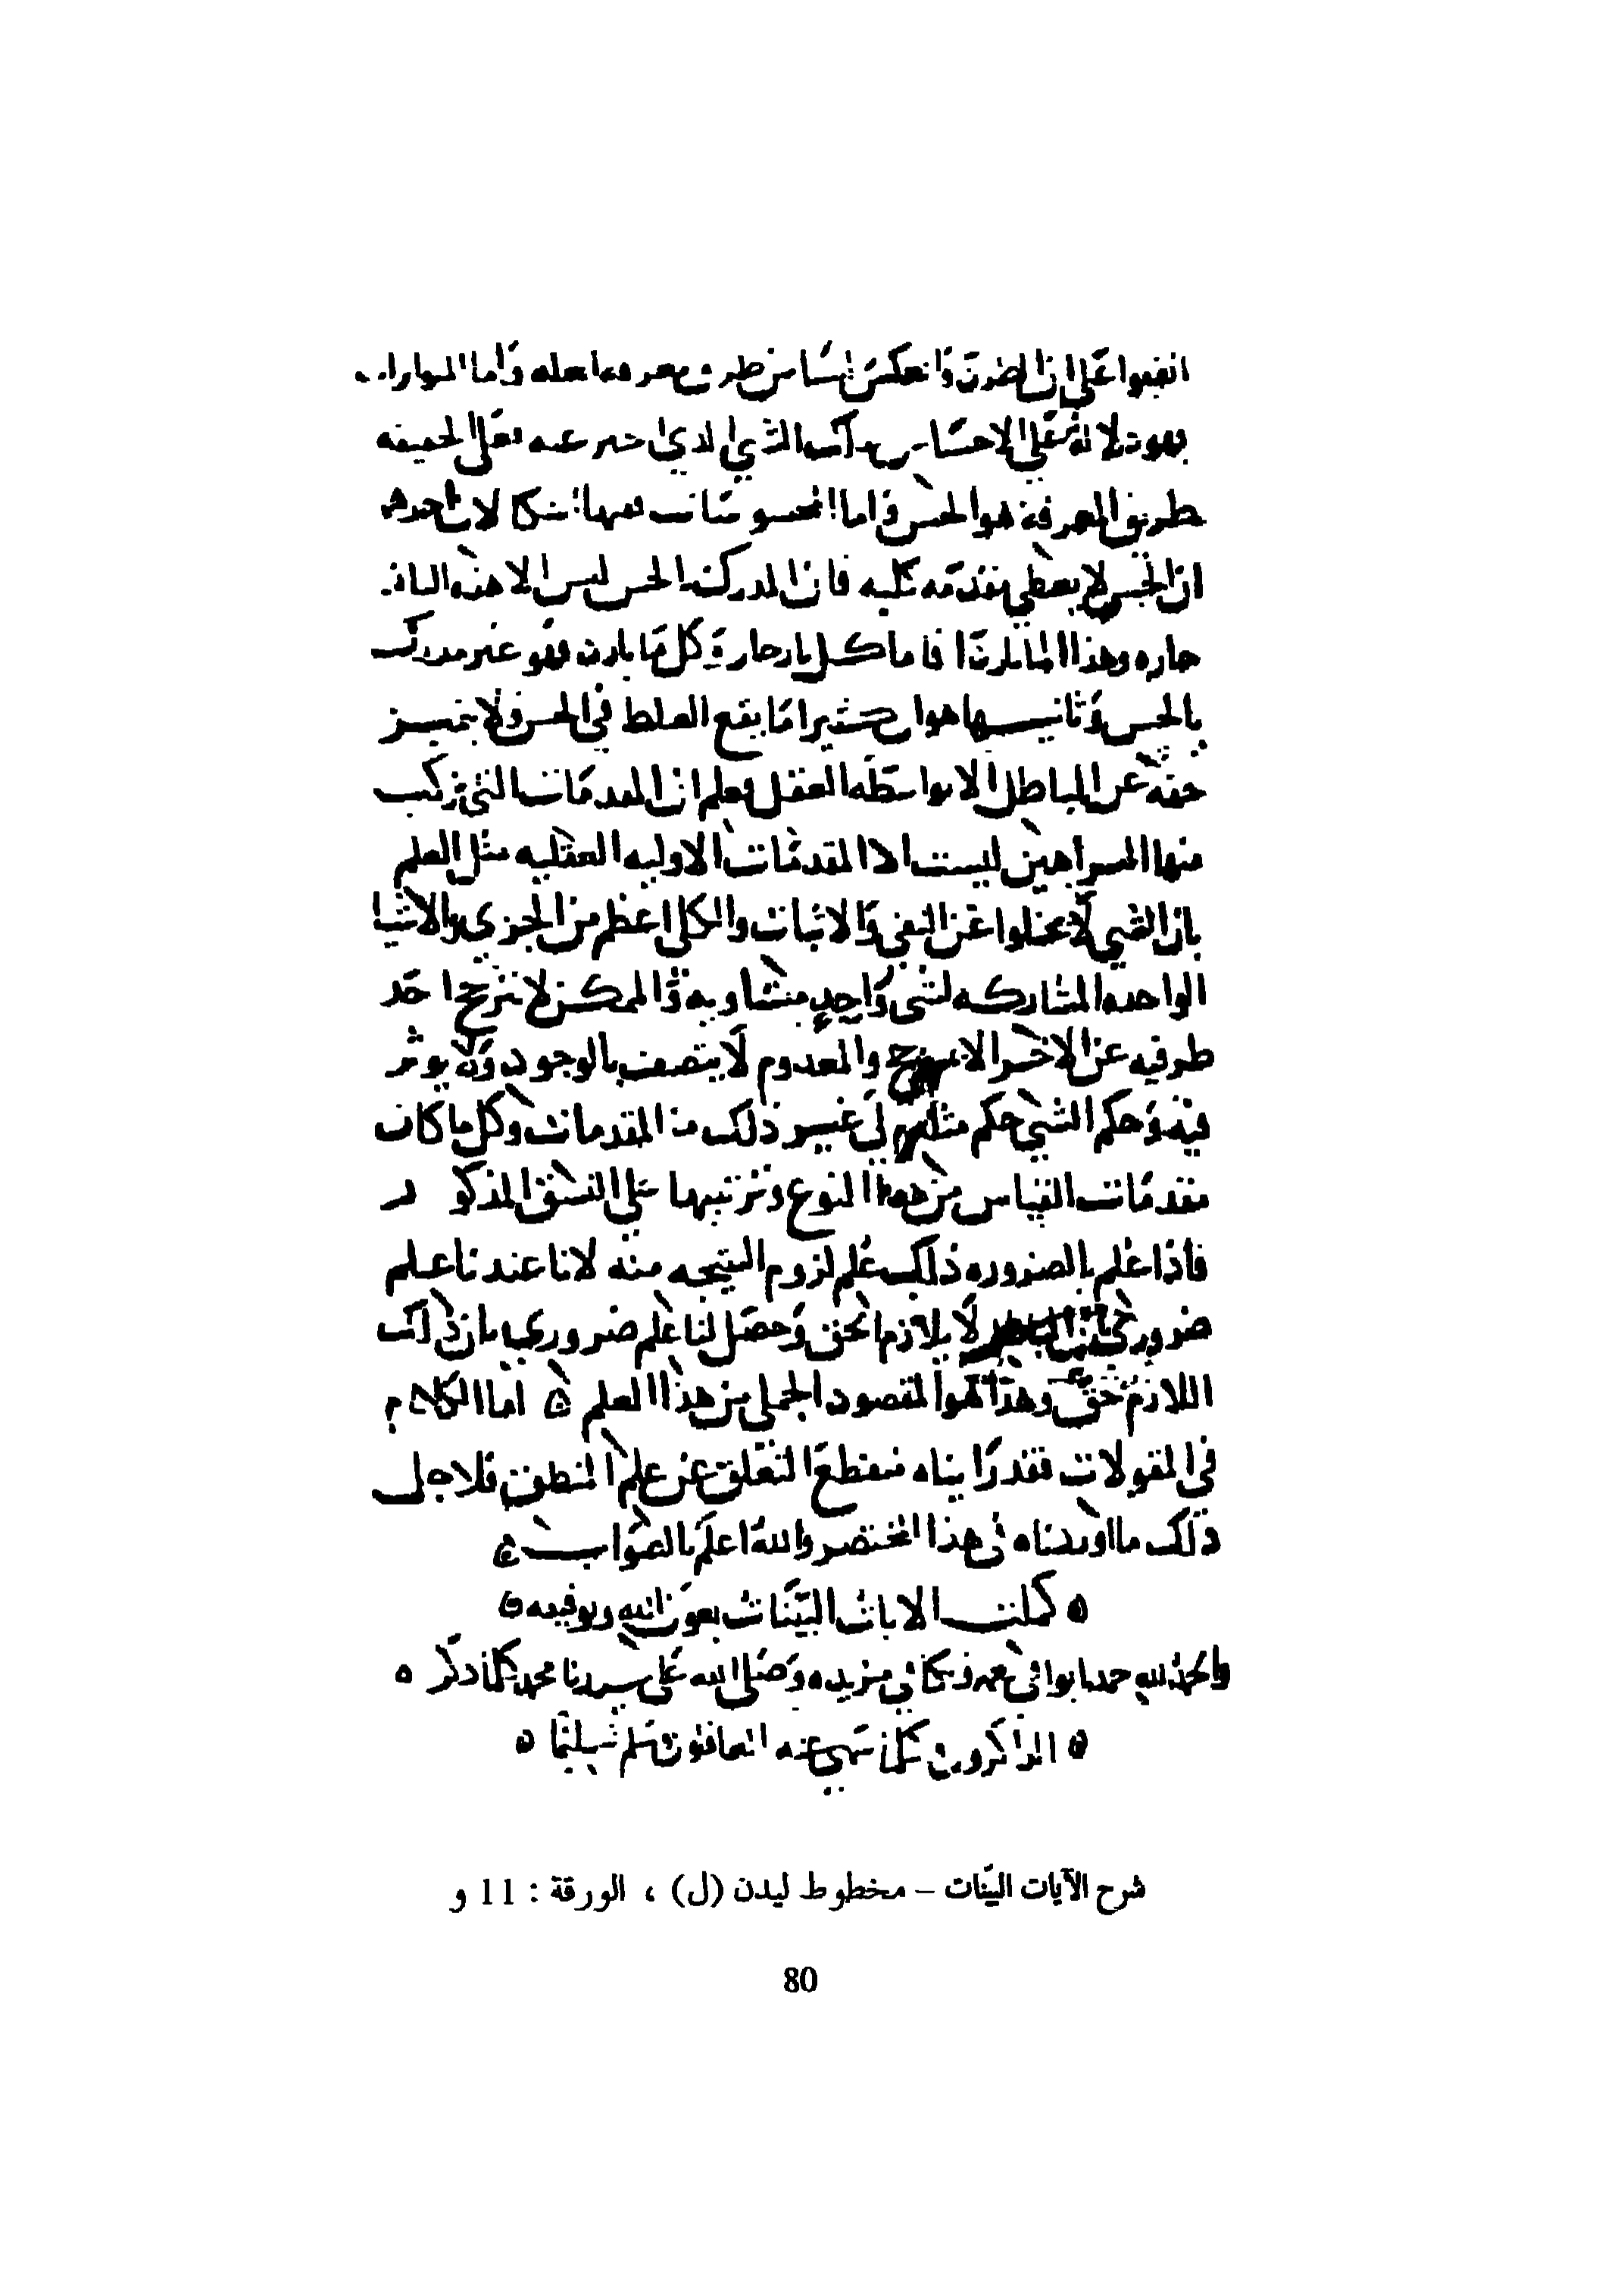 اتفقوا على ان الطرد والعكس ليسا من طرق معرفه العله واما المتواترات
فهو دلالته على الاحساس الذي اخبر عنه فعلى الحقيقه
طريق المعرفة هو الحس واما المحسوسات ففيها اشكالات احدها
ان الحس لا يعطي مقدمه كليه فان المدرك بالحس ليس الا هذه النار
حاره وهذا الما بارد اما كل نار حارة وكل ما بارد فهو غير مدرك
بالحس وثانيها هو ان كثيرا ما يقع الغلط في الحس ولا يتميز
حقه عن الباطل الا بواسطه العقل فعلم ان المقدمات التي تركب
منها البراهين ليست الا المقدمات الاوليه العقليه مثل العلم
بان الشي لا يخلوا عن النفي والاثبات والكل اعظم من الجزي والاشيا
الواحده المشاركه لشي واحد متساويه والممكن لا يترجح احد
طرفيه عن الاخر الا بمرجح والمعدوم لا يتصف بالوجود ولا يوثر
فيه وحكم الشي حكم مثله الى غير ذلك من المقدمات وكل ما كان
مقدمات القياس من هذا النوع وترتيبها على النسق المذكور
فاذا علم بالضروره ذلك علم لزوم النتيجه منه لانا عندنا علم
ضروري بان الباطل لا يلازم الحق وحصل لنا علم ضروري بان ذلك
اللازم حق وهذا هو المقصود الجملي من هذا العلم ه اما الكلام
في المقولات فقد رايناه منقطع التعلق عن علم المنطق فلاجل
ذلك ما اوردناه في هذا المختصر والله اعلم بالصواب ه
ه كملت الايات البينات بعون الله وتوفيقه ه
والحمد لله حمدا يوافي نعمه ويكافي مزيده وصلى الله على سيدنا محمد كلما ذكر ه
ه الذاكرون وكلما سهى عنه الغافلون وسلم تسليما ه
شرح الآيات البيّنات – مخطوط ليدن (ل) ، الورقة : 11 و
80